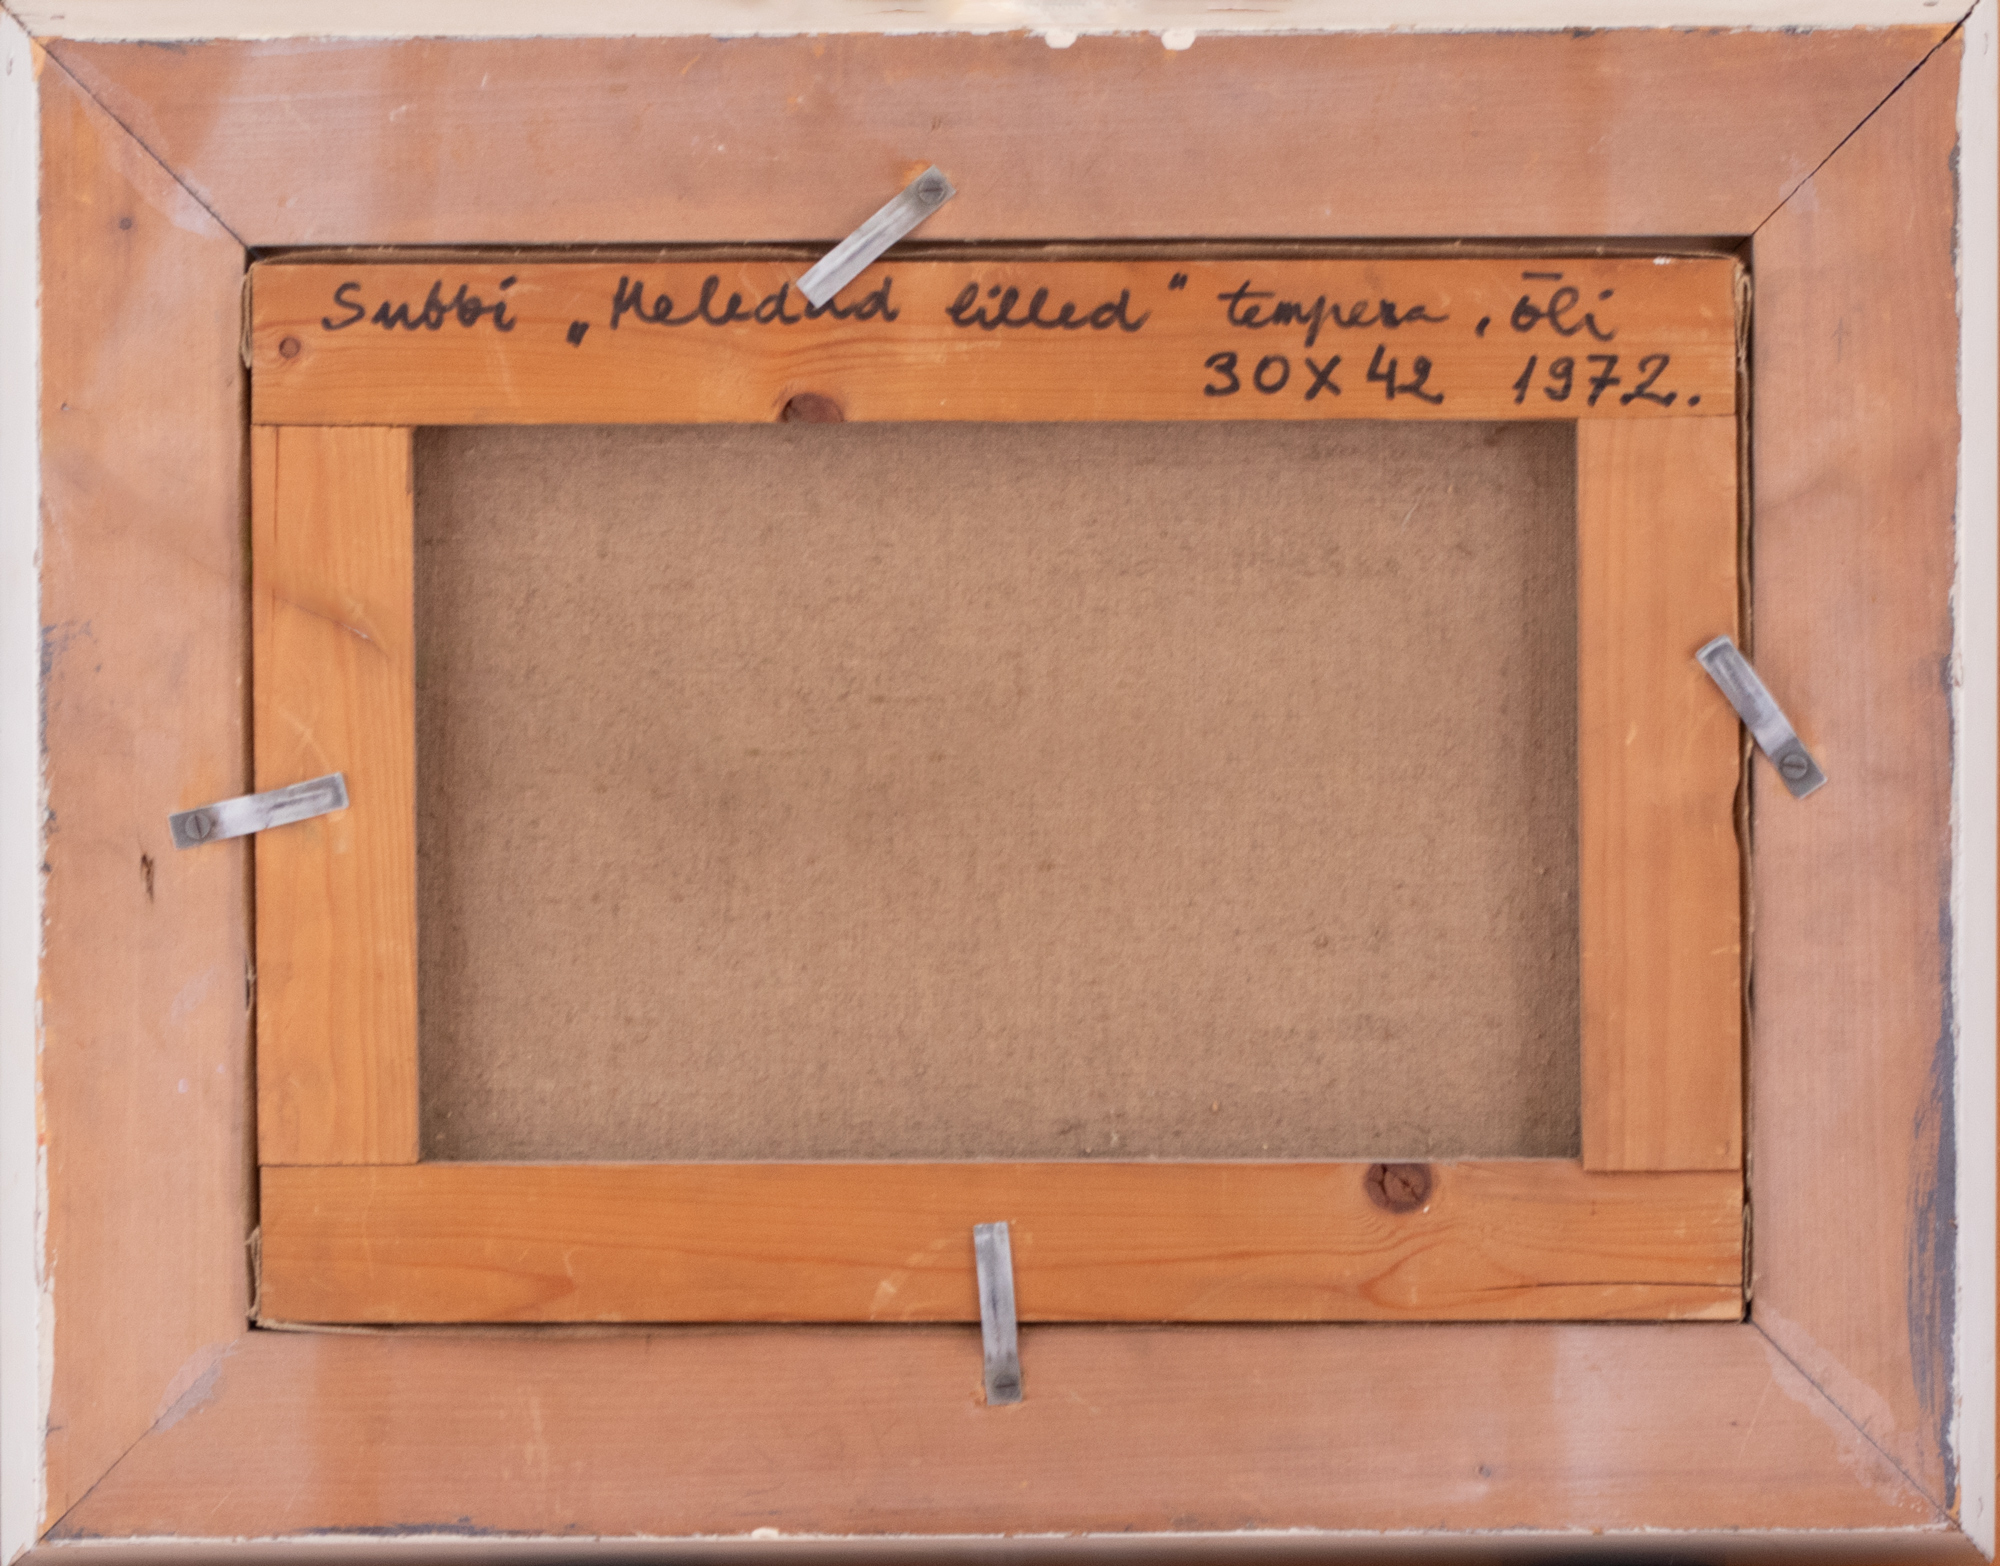 Subbi „Heledad lilled" tempera, õli
30X42 1972.